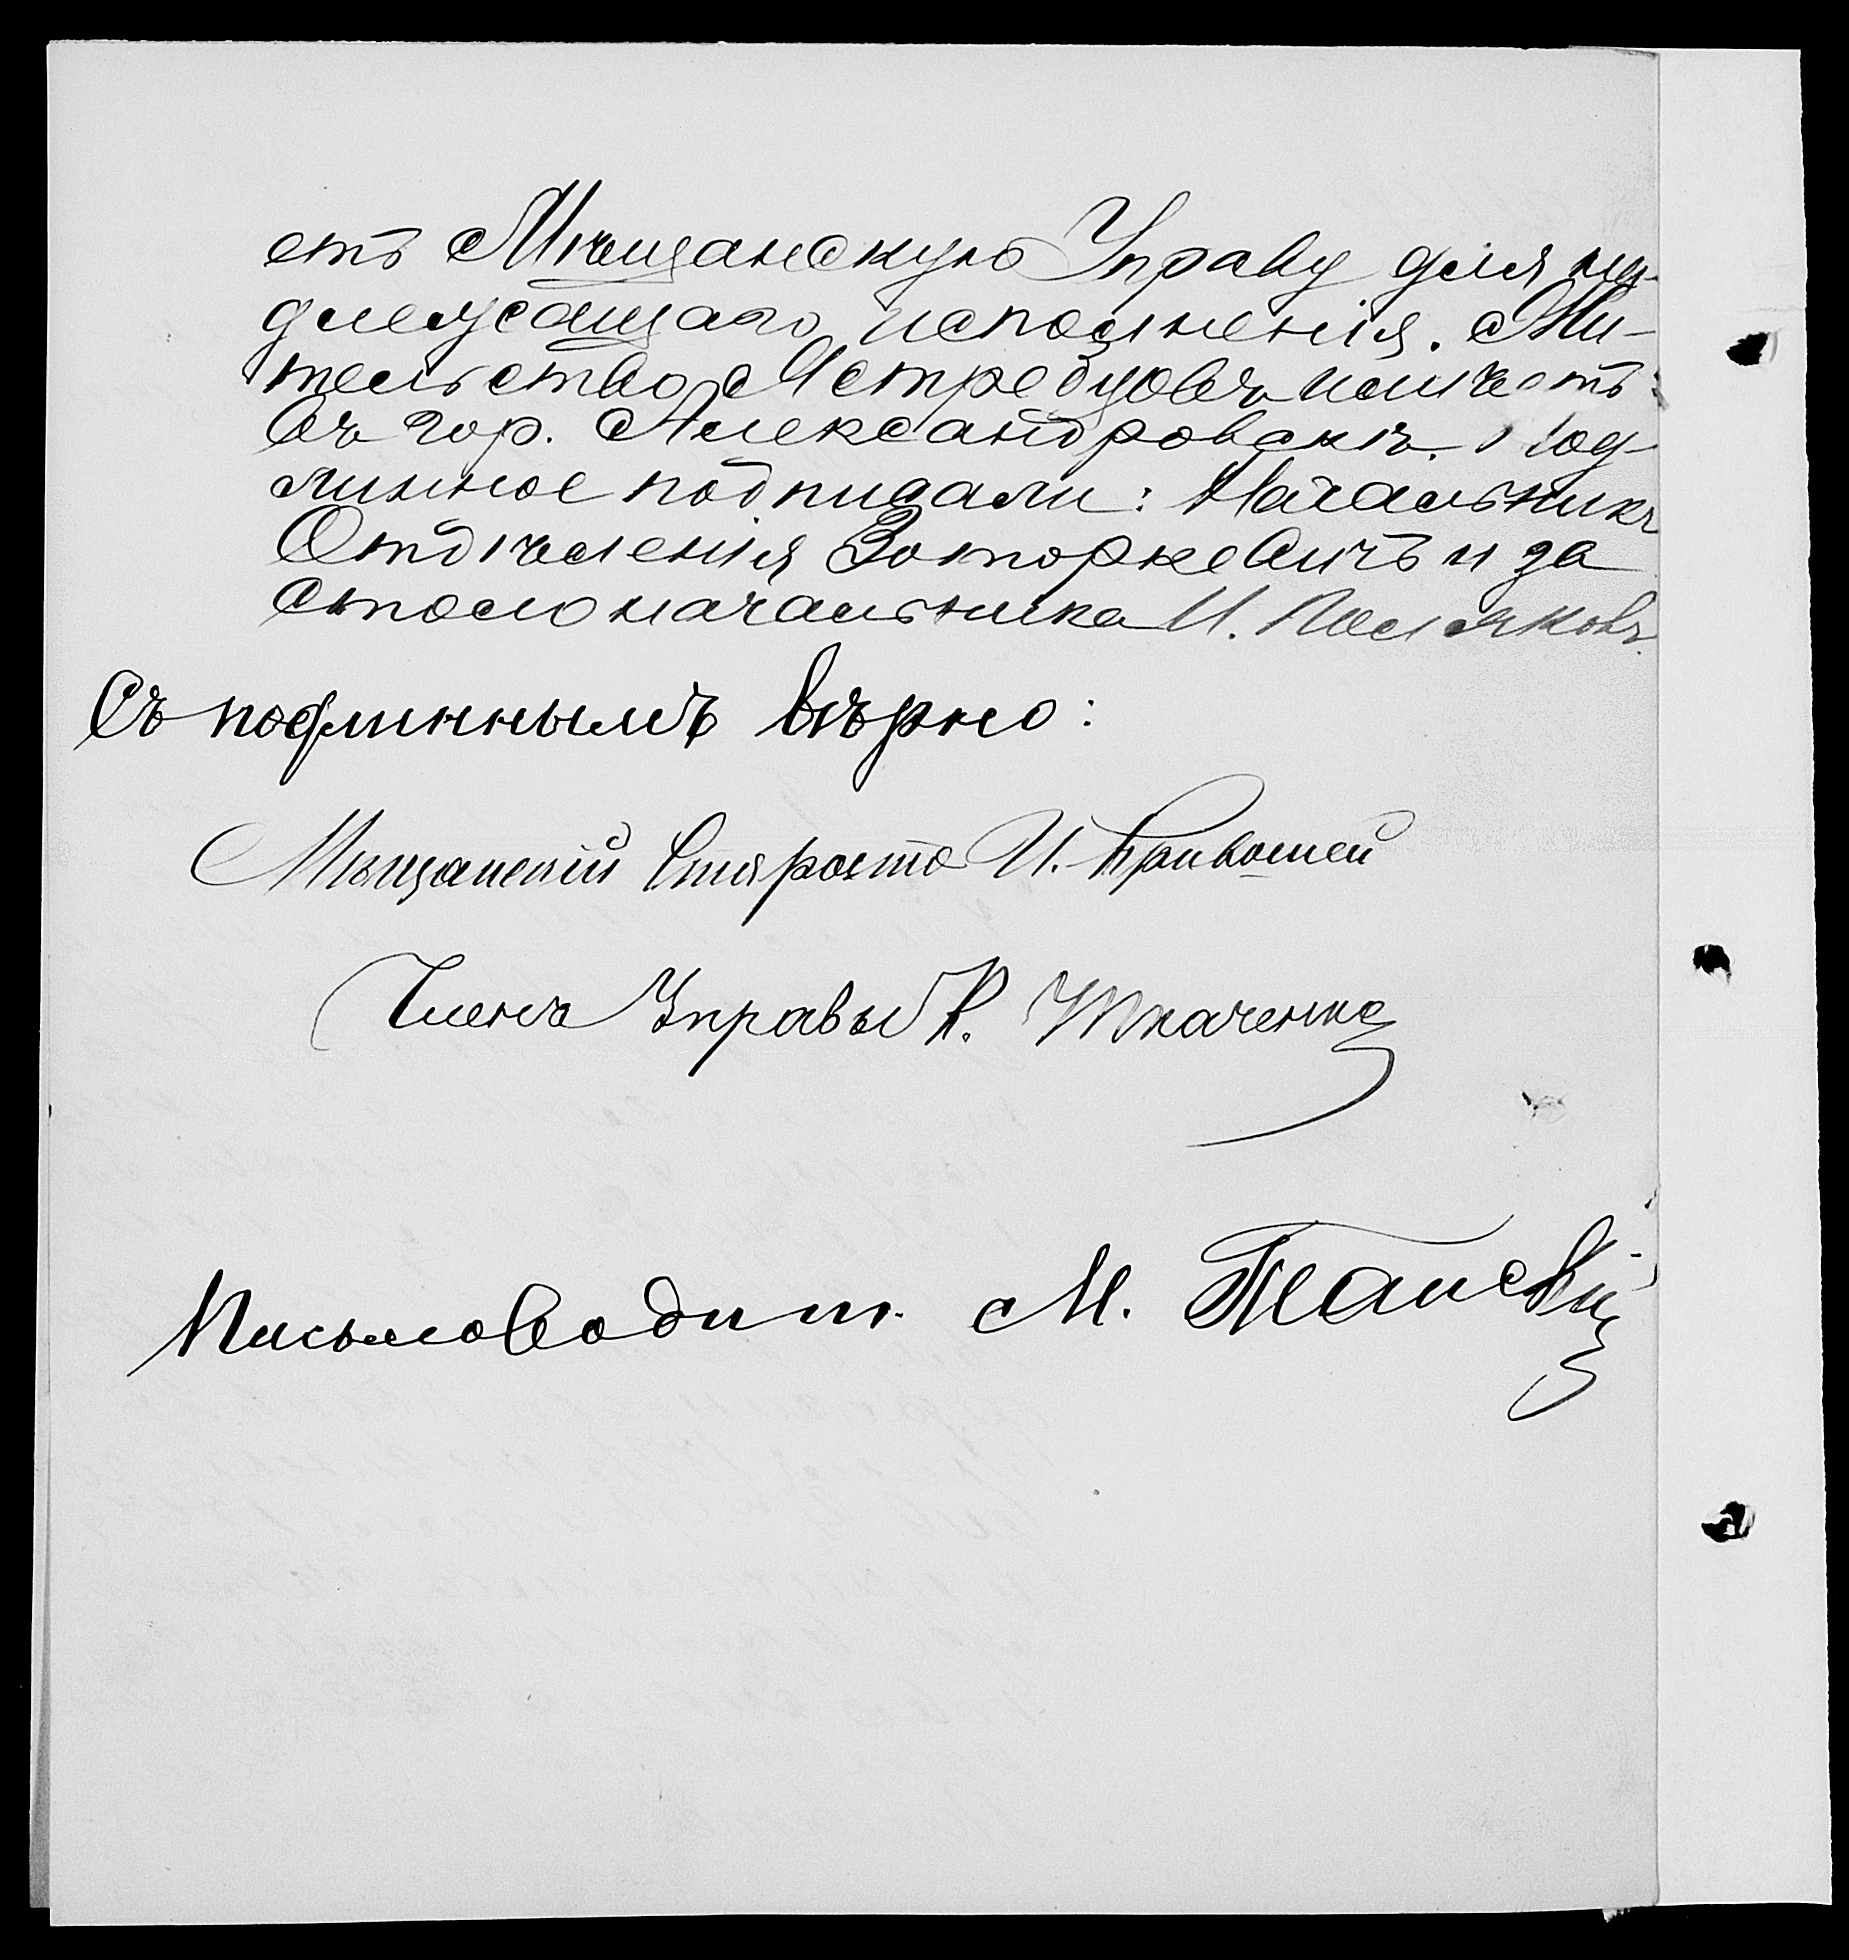 етъ Мѣщанскую Управу для на-
длежащаго исполненія. Жи-
тельство Ястребцовъ имѣетъ
въ гор. Александровскѣ. Под-
линное подписали: Начальникъ
Отдѣленія Воторкевичъ и за
столоначальника И. Поляковъ.
Съ подлиннымъ вѣрно:
Мѣщанскій Староста И. Кривошей
Членъ Управы К. Ткаченко
Письмоводит. М.